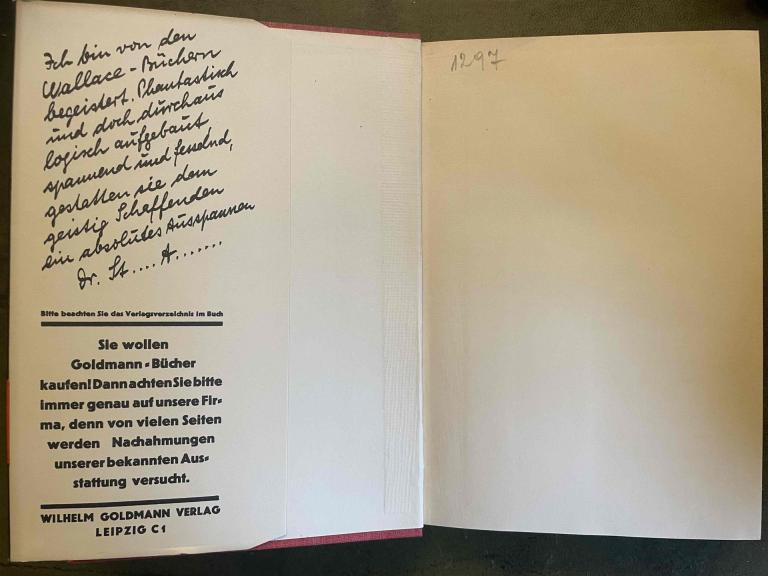 Ich bin von den
Wallace-Büchern
begeistert. Phantastisch
und doch durchaus
logisch aufgebaut
spannend und fesselnd,
gestatten sie dem
geistig Schaffenden
ein absolutes Ausspannen
Dr. St.... A.......
Bitte beachten Sie das Verlagsverzeichnis im Buch
Sie wollen
Goldmann-Bücher
kaufen! Dann achten Sie bitte
immer genau auf unsere Fir-
ma, denn von vielen Seiten
werden Nachahmungen
unserer bekannten Aus-
stattung versucht.
WILHELM GOLDMANN VERLAG
LEIPZIG C1
1297